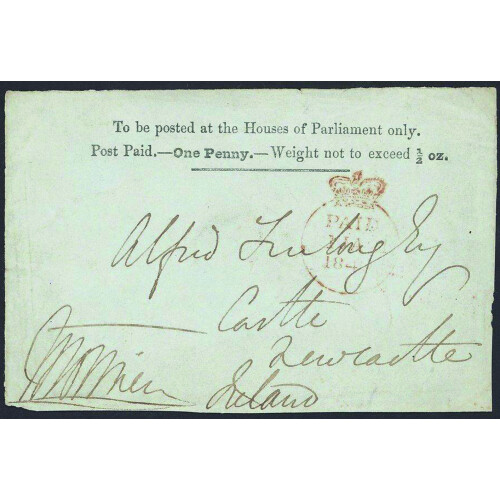 To be posted at the Houses of Parliament only.
Post Paid.—One Penny.—Weight not to exceed ½ oz.
PAID
18
Alfred Furlong Esq
Castle
Newcastle
Ireland